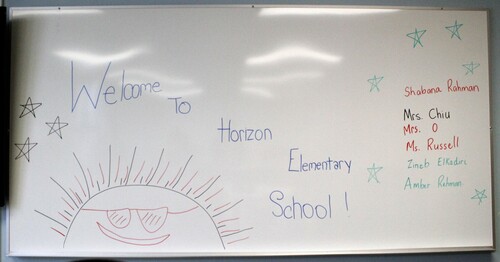 Welcome
To
Horizon
Elementary
School!
Shabana Rahman
Mrs. Chiu
Mrs. O
Ms. Russell
Zineb ElKadiri
Amber Rahman